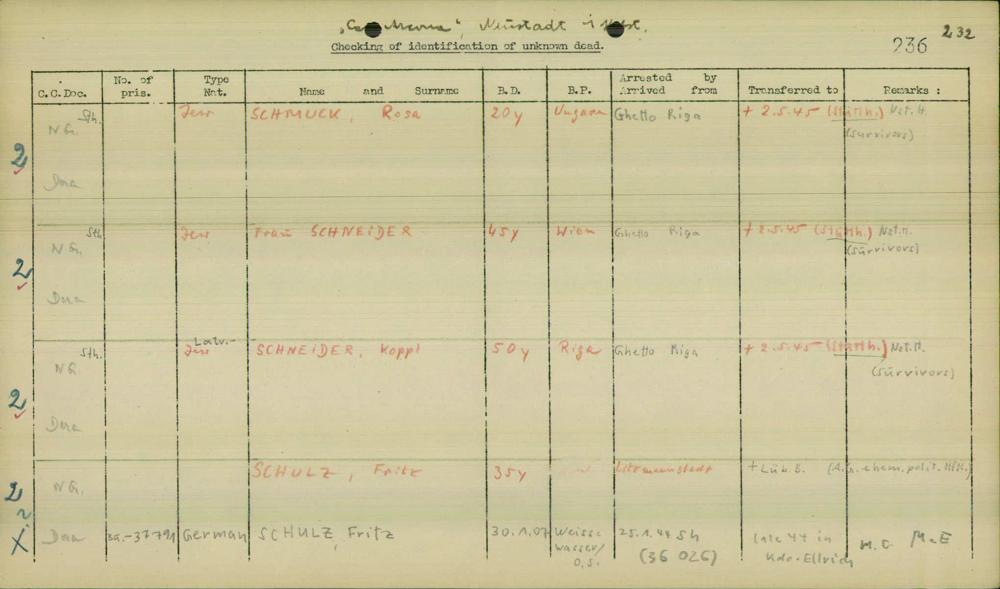 "Cap Arcona", Neustadt i Holst.
Checking of identification of unknown dead.
236 232
C.C.Doc. No. of pris. Type Nat. Name and Surname B.D. B.P. Arrested by Arrived from Transferred to Remarks :
2 NG. Sth. Jew SCHMUCK, Rosa 20y Ungarn Ghetto Riga + 2.5.45 (Stutth.) Nst.H.
(survivors)
Dora
2 NG. Sth. Jew Frau SCHNEIDER 45y Wien Ghetto Riga + 2.5.45 (Stutth.) Nst.H.
(survivors)
Dora
2 NG. Sth. Latv.-
Jew SCHNEIDER, Koppl 50y Riga Ghetto Riga + 2.5.45 (Stutth.) Nst.H.
(survivors)
Dora
2 NG. SCHULZ, Fritz 35y Litzmannstadt + Lüb.B.
2
X Dora 37791 German SCHULZ, Fritz 30.1.07 Weiss-
wasser/
O.S. 25.1.44 Sh
(36 026) late 44 in
Kdo-Ellrich